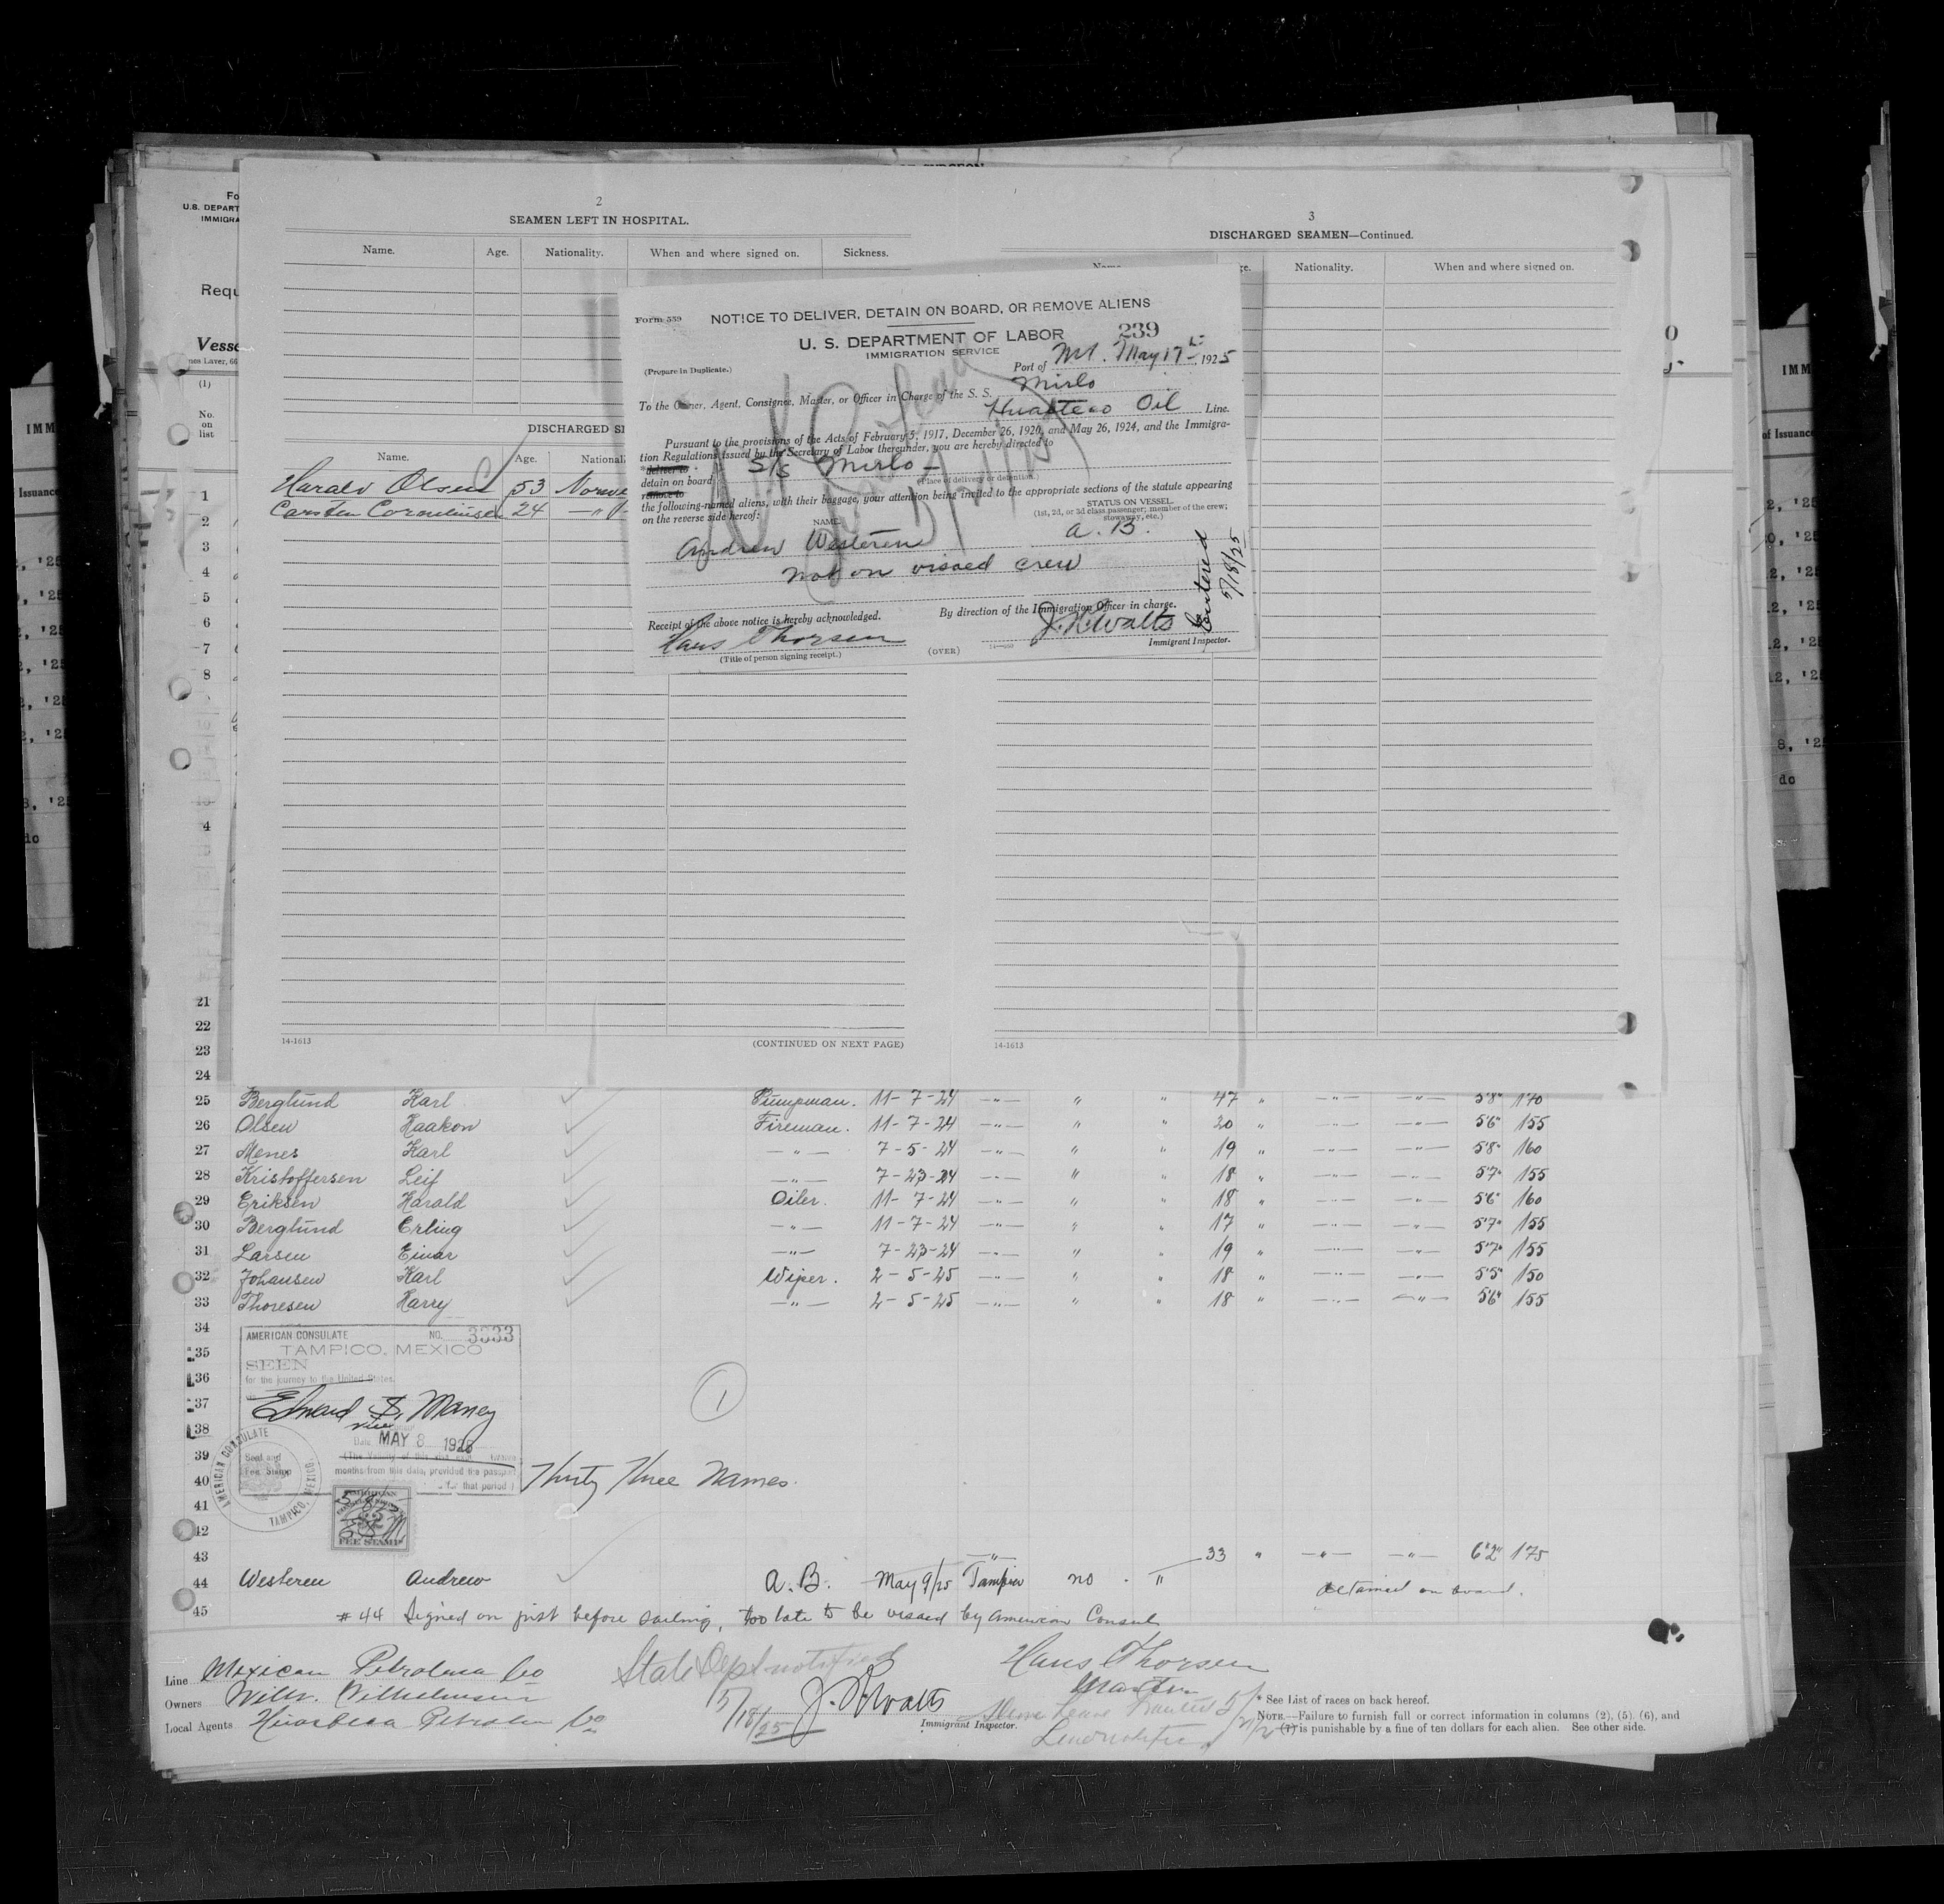 2
SEAMEN LEFT IN HOSPITAL.
Name. Age. Nationality. When and where signed on. Sickness.
3
DISCHARGED SEAMEN—Continued.
Nationality. When and where signed on.
U.S. DEPART
IMMIGRA
Requ
Vesse
(1)
No.
on
list
DISCHARGED SE
Name. Age. National
Harald Olsen 53 Norwe
Carsten Corneliusen 24 —"—
Form 559
NOTICE TO DELIVER, DETAIN ON BOARD, OR REMOVE ALIENS
U. S. DEPARTMENT OF LABOR 239
IMMIGRATION SERVICE
(Prepare in Duplicate.)
Port of May 17 1925
To the Owner, Agent, Consignee, Master, or Officer in Charge of the S. S. Mirlo
Huasteco Oil Line.
Pursuant to the provisions of the Acts of February 5, 1917, December 26, 1920, and May 26, 1924, and the Immigra-
tion Regulations issued by the Secretary of Labor thereunder, you are hereby directed to
deliver to
detain on board S/S Mirlo
remove to
(Place of delivery or detention.)
the following-named aliens, with their baggage, your attention being invited to the appropriate sections of the statute appearing
on the reverse side hereof:
NAME
STATUS ON VESSEL
(1st, 2d, or 3d class passenger; member of the crew;
stowaway, etc.)
Andrew Westeren A. B.
not on visaed crew
Entered 5/18/25
Receipt of the above notice is hereby acknowledged.
By direction of the Immigration Officer in charge.
Hans Thorsen
J. H. Watts
(Title of person signing receipt.)
(OVER)
Immigrant Inspector.
1
2
3
4
5
6
7
8
4
21
22
23
24
14-1613
(CONTINUED ON NEXT PAGE)
14-1613
25 Berglund Karl Pumpman. 11-7-24 —"— " " 47 " —"— —"— 5'8" 170
26 Olsen Haakon Fireman. 11-7-24 —"— " " 20 " —"— —"— 5'6" 155
27 Menes Karl —"— 7-5-24 —"— " " 19 " —"— —"— 5'8" 160
28 Kristoffersen Leif —"— 7-23-24 —"— " " 18 " —"— —"— 5'7" 155
29 Eriksen Harald Oiler. 11-7-24 —"— " " 18 " —"— —"— 5'6" 160
30 Berglund Erling —"— 11-7-24 —"— " " 17 " —"— —"— 5'7" 155
31 Larsen Einar —"— 7-23-24 —"— " " 19 " —"— —"— 5'7" 155
32 Johansen Karl Wiper. 2-5-25 —"— " " 18 " —"— —"— 5'5" 150
33 Thoresen Harry —"— 2-5-25 —"— " " 18 " —"— —"— 5'6" 155
34
35
36
37
38
39
40
41
42
43
AMERICAN CONSULATE NO. 3533
TAMPICO, MEXICO
SEEN
for the journey to the United States.
Edward S. Maney
vice
Date MAY 8 1925
(The Validity of this
months from this date, provided the passport
for that period)
Seal and
Fee Stamp
AMERICAN CONSULATE
TAMPICO, MEXICO.
FEE STAMP
1
Thirty Three Names.
—"— 33 " —"— —"— 6'2" 175
44 Westeren Andrew A. B. May 9/25 Tampico no " detained on board.
45 #44 Signed on just before sailing, too late to be visaed by American Consul
Line Mexican Petroleum Co
Owners Wilh. Wilhelmsen
Local Agents Huasteca Petroleum Co
State Dept notified
5/18/25
J. H. Watts
Immigrant Inspector.
Hans Thorsen
Master
* See List of races on back hereof.
NOTE.—Failure to furnish full or correct information in columns (2), (5), (6), and
(7) is punishable by a fine of ten dollars for each alien. See other side.